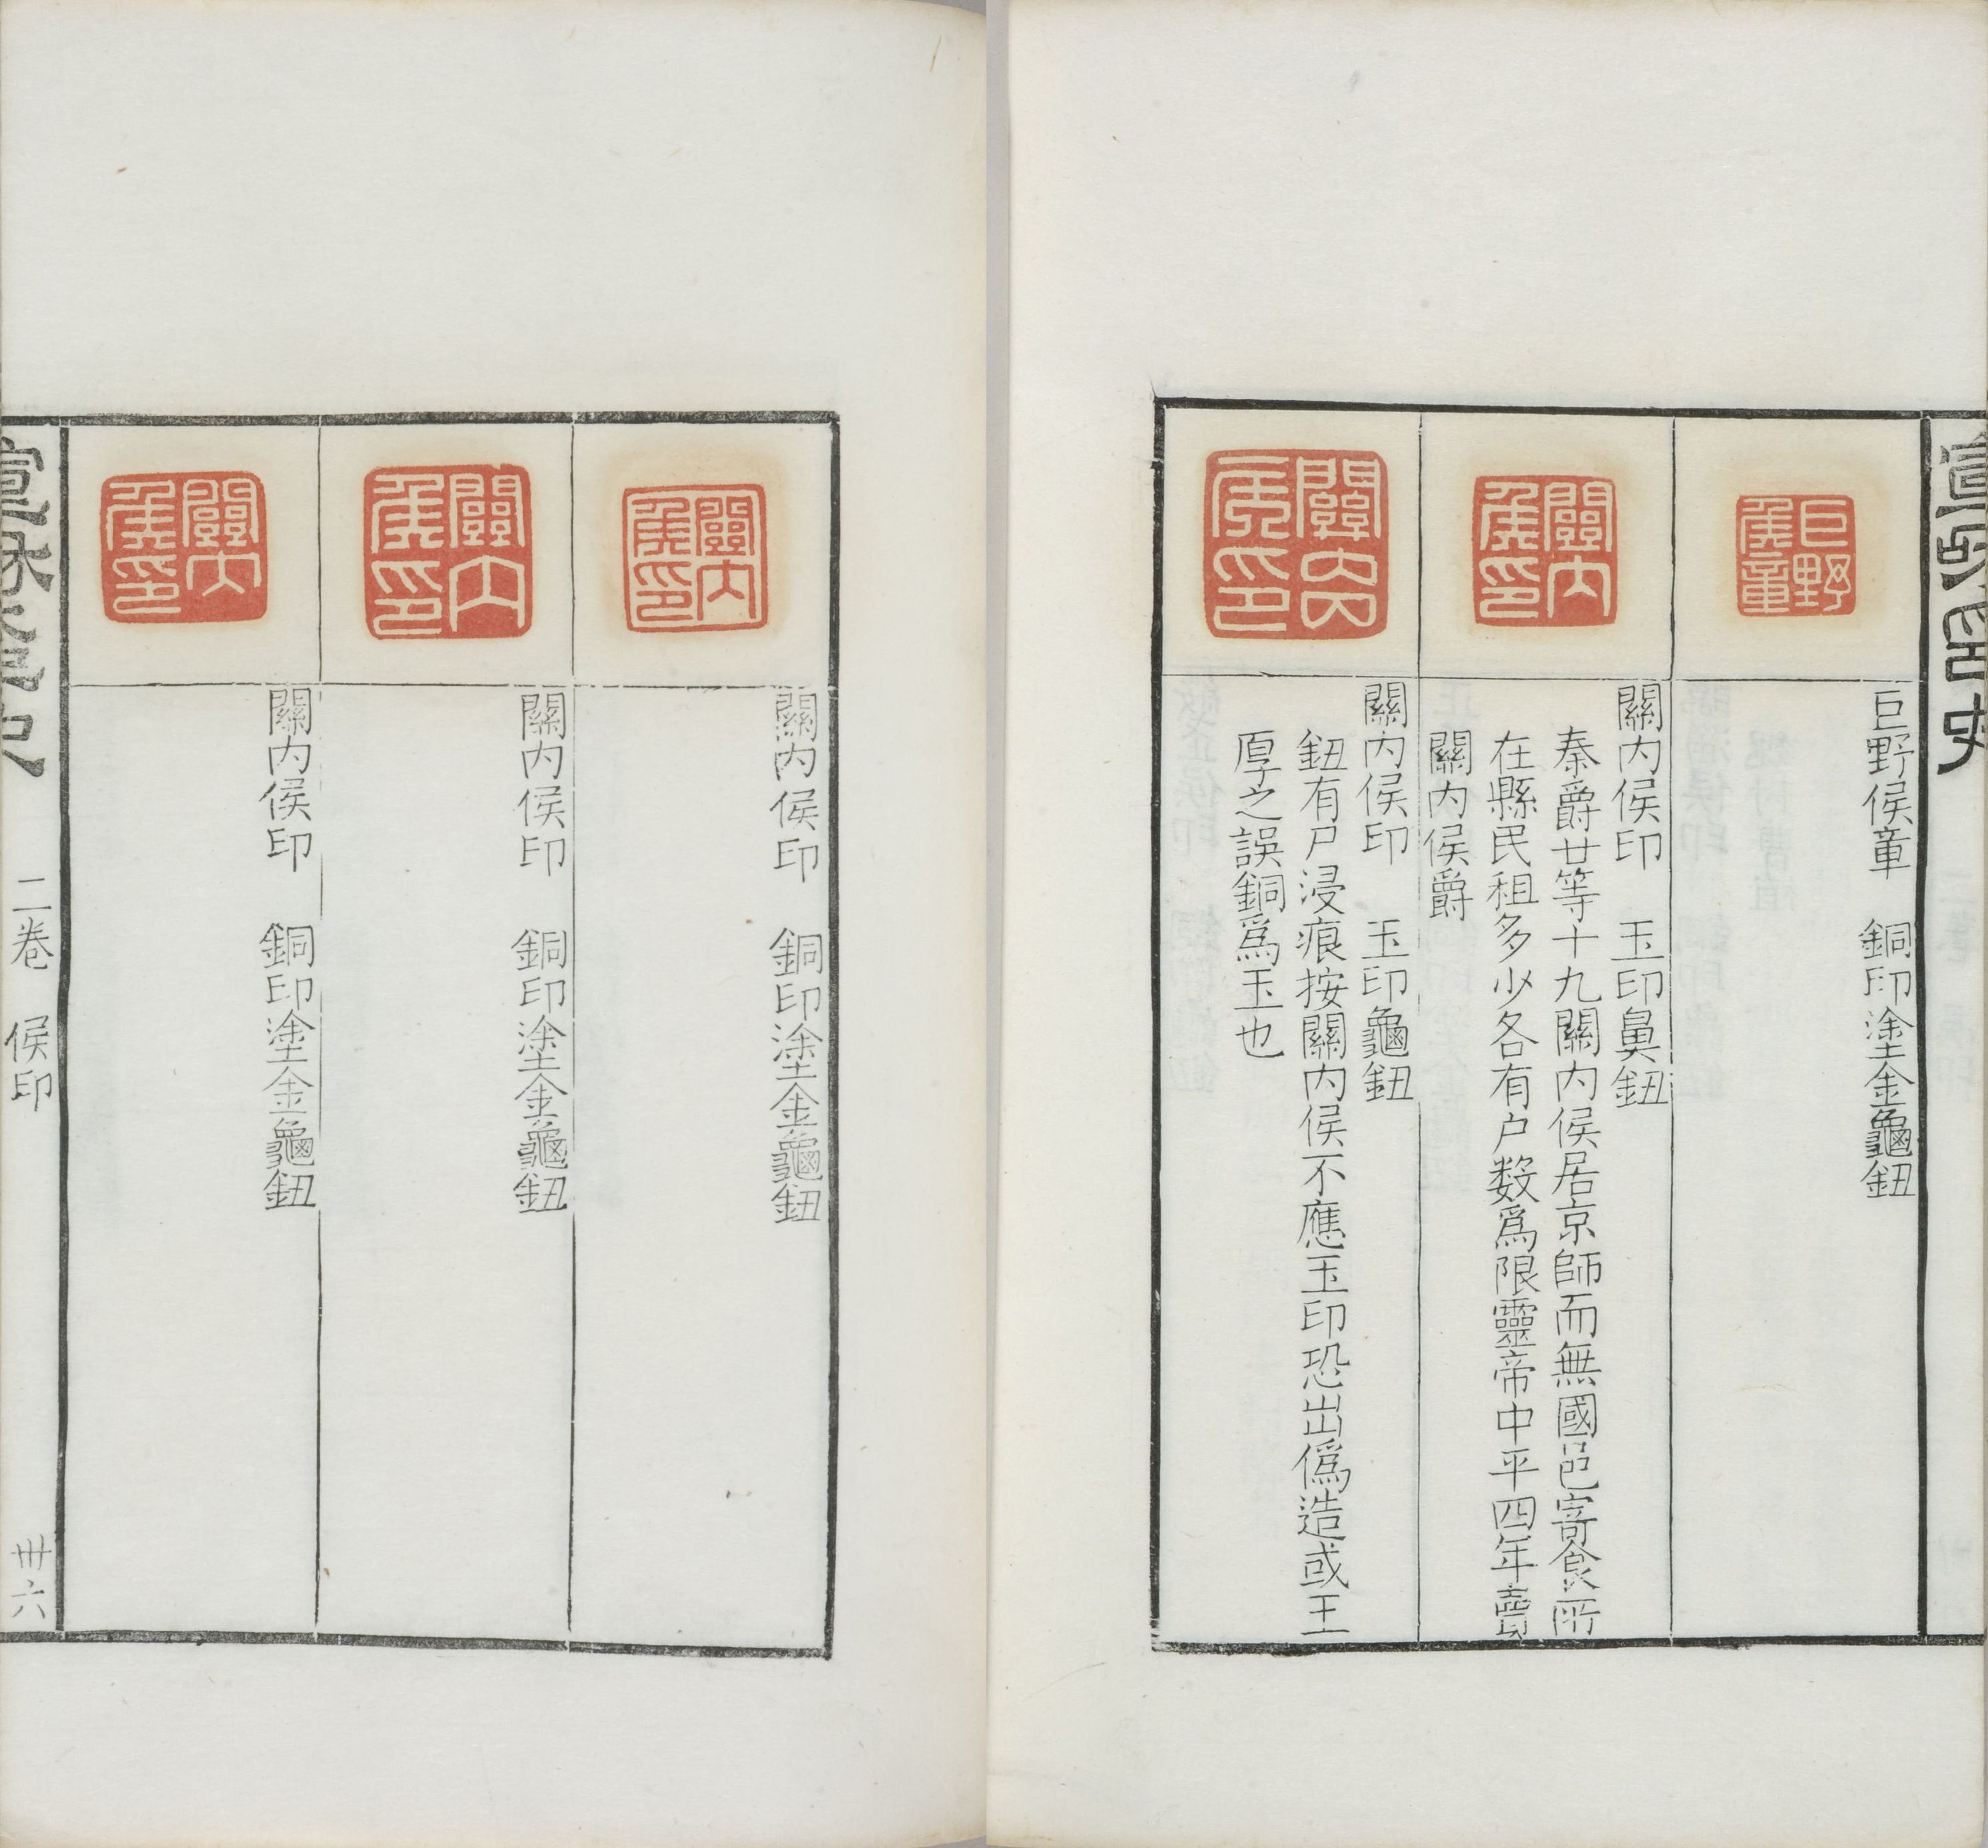 巨野侯章　銅印塗金龜鈕
關内侯印　玉印鼻鈕
秦爵廿等十九關内侯居京師而無國邑寄食所
在縣民租多少各有户数爲限靈帝中平四年賣
關内侯爵
關内侯印　玉印龜鈕
鈕有尸浸痕按關内侯不應玉印恐出僞造或王
厚之誤銅爲玉也
巨野侯章
關内侯印
關内侯印
關内侯印　銅印塗金龜鈕
關内侯印　銅印塗金龜鈕
關内侯印　銅印塗金龜鈕
關内侯印
關内侯印
關内侯印
二卷　侯印
卅六